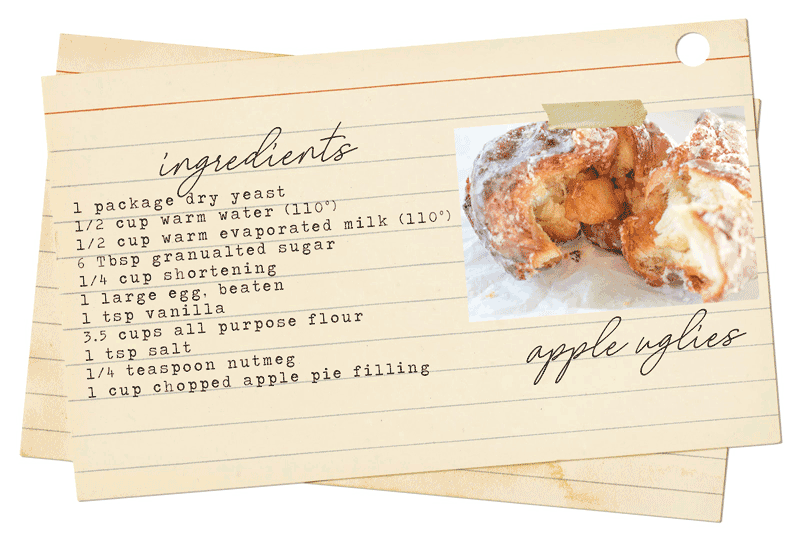 ingredients
1 package dry yeast
1/2 cup warm water (110°)
1/2 cup warm evaporated milk (110°)
6 Tbsp granualted sugar
1/4 cup shortening
1 large egg, beaten
1 tsp vanilla
3.5 cups all purpose flour
1 tsp salt
1/4 teaspoon nutmeg
1 cup chopped apple pie filling
apple uglies